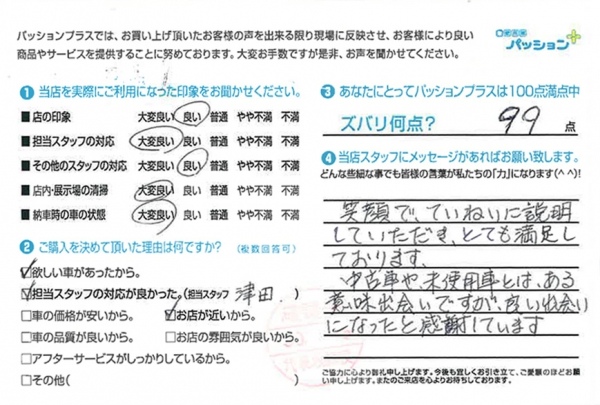 パッションプラスでは、お買い上げ頂いたお客様の声を出来る限り現場に反映させ、お客様により良い
商品やサービスを提供することに努めております。大変お手数ですが是非、お声を聞かせてください。
パッション+
1 当店を実際にご利用になった印象をお聞かせください。
■ 店の印象 大変良い 良い 普通 やや不満 不満
■ 担当スタッフの対応 大変良い 良い 普通 やや不満 不満
■ その他のスタッフの対応 大変良い 良い 普通 やや不満 不満
■ 店内・展示場の清掃 大変良い 良い 普通 やや不満 不満
■ 納車時の車の状態 大変良い 良い 普通 やや不満 不満
2 ご購入を決めて頂いた理由は何ですか? (複数回答可)
☑欲しい車があったから。
☑担当スタッフの対応が良かった。(担当スタッフ 津田 )
□車の価格が安いから。 ☑お店が近いから。
□車の品質が良いから。 □お店の雰囲気が良いから。
□アフターサービスがしっかりしているから。
□その他(
3 あなたにとってパッションプラスは100点満点中
ズバリ何点? 99 点
4 当店スタッフにメッセージがあればお願い致します。
どんな些細な事でも皆様の言葉が私たちの「力」になります(^^)!
笑顔で、ていねいに説明
していただき、とても満足し
ております。
中古車や、未使用車とは、ある
意味出会いですが、良い出会い
になったと感謝しています
ご協力に心より御礼申し上げます。今後も宜しくお引き立て、ご愛顧のほどお願
い申し上げます。またのご来店を心よりお待ちしております。